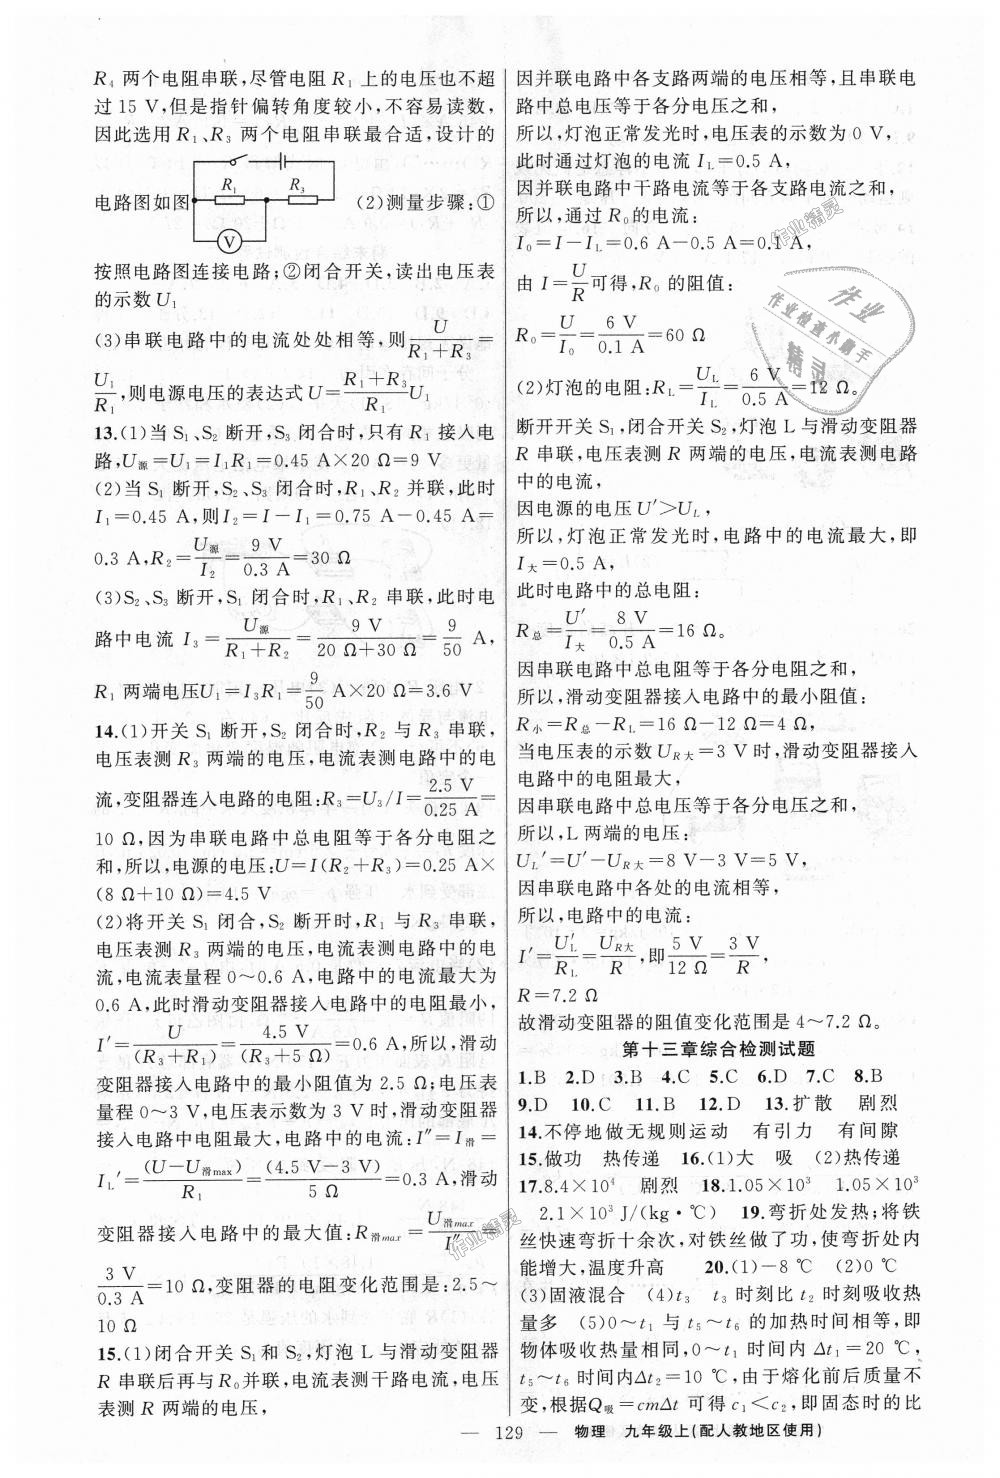 R₄ 两个电阻串联,尽管电阻 R₁ 上的电压也不超
过 15 V,但是指针偏转角度较小,不容易读数,
因此选用 R₁、R₃ 两个电阻串联最合适,设计的
R₁ R₃
电路图如图 (2)测量步骤:①
V
按照电路图连接电路;②闭合开关,读出电压表
的示数 U₁
(3)串联电路中的电流处处相等,则 U/(R₁+R₃)=
U₁/R₁,则电源电压的表达式 U=(R₁+R₃)/R₁ U₁
13.(1)当 S₁、S₂ 断开,S₃ 闭合时,只有 R₁ 接入电
路,U源=U₁=I₁R₁=0.45 A×20 Ω=9 V
(2)当 S₁ 断开,S₂、S₃ 闭合时,R₁、R₂ 并联,此时
I₁=0.45 A,则 I₂=I-I₁=0.75 A-0.45 A=
0.3 A,R₂=U源/I₂=9 V/0.3 A=30 Ω
(3)S₂、S₃ 断开,S₁ 闭合时,R₁、R₂ 串联,此时电
路中电流 I₃=U源/(R₁+R₂)=9 V/(20 Ω+30 Ω)=9/50 A,
R₁ 两端电压U₁=I₃R₁=9/50 A×20 Ω=3.6 V
14.(1)开关 S₁ 断开,S₂ 闭合时,R₂ 与 R₃ 串联,
电压表测 R₃ 两端的电压,电流表测电路中的电
流,变阻器连入电路的电阻:R₃=U₃/I=2.5 V/0.25 A=
10 Ω,因为串联电路中总电阻等于各分电阻之
和,所以,电源的电压:U=I(R₂+R₃)=0.25 A×
(8 Ω+10 Ω)=4.5 V
(2)将开关 S₁ 闭合,S₂ 断开时,R₁ 与 R₃ 串联,
电压表测 R₃ 两端的电压,电流表测电路中的电
流,电流表量程 0~0.6 A,电路中的电流最大为
0.6 A,此时滑动变阻器接入电路中的电阻最小,
I′=U/(R₃+R₁)=4.5 V/(R₃+5 Ω)=0.6 A,所以,滑动
变阻器接入电路中的最小阻值为 2.5 Ω;电压表
量程 0~3 V,电压表示数为 3 V 时,滑动变阻器
接入电路中电阻最大,电路中的电流:I″=I滑=
I_L′=(U-U滑max)/R₁=(4.5 V-3 V)/5 Ω=0.3 A,滑动
变阻器接入电路中的最大值:R滑max=U滑max/I″=
3 V/0.3 A=10 Ω,变阻器的电阻变化范围是:2.5~
10 Ω
15.(1)闭合开关 S₁和 S₂,灯泡 L 与滑动变阻器
R 串联后再与 R₀并联,电流表测干路电流,电压
表测 R 两端的电压,
因并联电路中各支路两端的电压相等,且串联电
路中总电压等于各分电压之和,
所以,灯泡正常发光时,电压表的示数为 0 V,
此时通过灯泡的电流 I_L=0.5 A,
因并联电路中干路电流等于各支路电流之和,
所以,通过 R₀的电流:
I₀=I-I_L=0.6 A-0.5 A=0.1 A,
由 I=U/R可得,R₀ 的阻值:
R₀=U/I₀=6 V/0.1 A=60 Ω
(2)灯泡的电阻:R_L=U_L/I_L=6 V/0.5 A=12 Ω。
断开开关 S₁,闭合开关 S₂,灯泡 L 与滑动变阻器
R 串联,电压表测 R 两端的电压,电流表测电路
中的电流,
因电源的电压 U′>U_L,
所以,灯泡正常发光时,电路中的电流最大,即
I大=0.5 A,
此时电路中的总电阻:
R总=U′/I大=8 V/0.5 A=16 Ω。
因串联电路中总电阻等于各分电阻之和,
所以,滑动变阻器接入电路中的最小阻值:
R小=R总-R_L=16 Ω-12 Ω=4 Ω,
当电压表的示数 U_R大=3 V 时,滑动变阻器接入
电路中的电阻最大,
因串联电路中总电压等于各分电压之和,
所以,L 两端的电压:
U_L′=U′-U_R大=8 V-3 V=5 V,
因串联电路中各处的电流相等,
所以,电路中的电流:
I′=U_L′/R_L=U_R大/R,即5 V/12 Ω=3 V/R,
R=7.2 Ω
故滑动变阻器的阻值变化范围是 4~7.2 Ω。
第十三章综合检测试题
1.B 2.D 3.B 4.C 5.C 6.D 7.C 8.B
9.D 10.C 11.B 12.D 13.扩散 剧烈
14.不停地做无规则运动 有引力 有间隙
15.做功 热传递 16.(1)大 吸 (2)热传递
17.8.4×10⁴ 剧烈 18.1.05×10³ 1.05×10³
2.1×10³ J/(kg·℃) 19.弯折处发热;将铁
丝快速弯折十余次,对铁丝做了功,使弯折处内
能增大,温度升高 20.(1)-8 ℃ (2)0 ℃
(3)固液混合 (4)t₃ t₃ 时刻比 t₂ 时刻吸收热
量多 (5)0~t₁ 与 t₅~t₆ 的加热时间相等,即
物体吸收热量相同,0~t₁ 时间内 Δt₁=20 ℃,
t₅~t₆ 时间内Δt₂=10 ℃,由于熔化前后质量不
变,根据Q吸=cmΔt 可得 c₁<c₂,即固态时的比
— 129 — 物理 九年级上(配人教地区使用)
作业
作业检查小助手
精灵
作业精灵
作业精灵